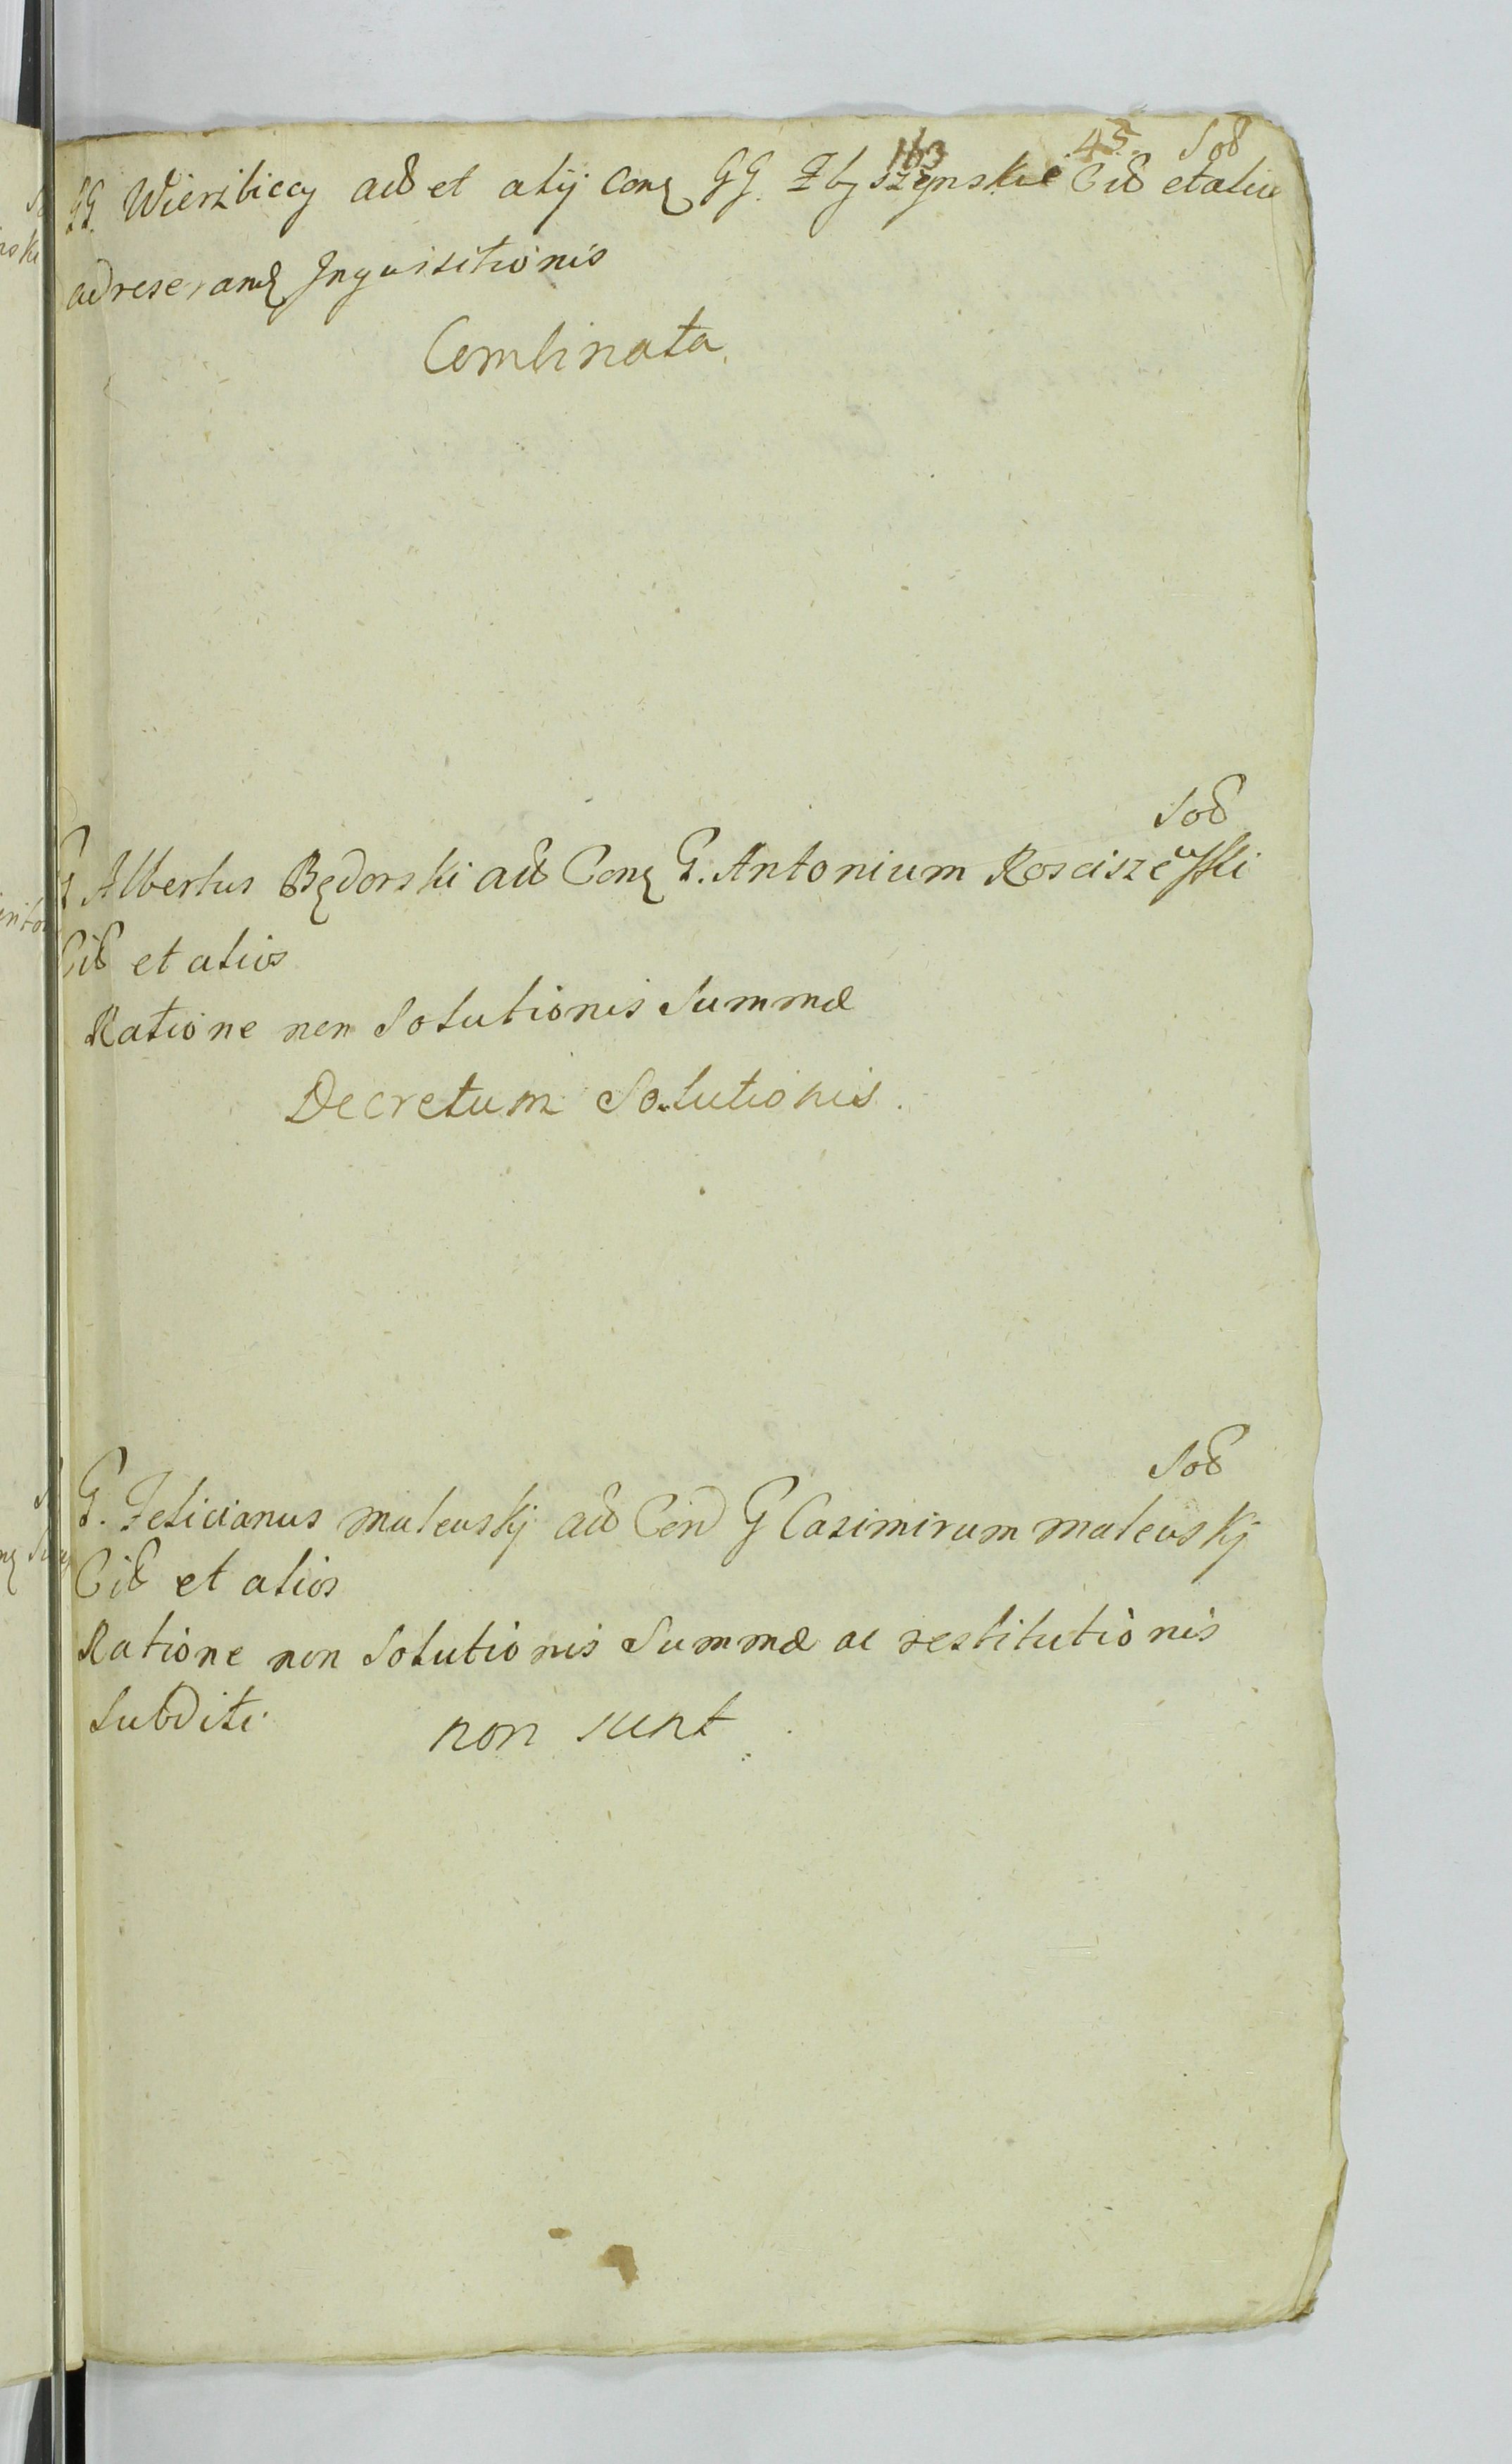 163 45. Sob
GG. Wierzbiccy acto et alij Conq GG. Zbyszynskie Cito et alios
ad reserandq Inquisitionis
Combinata.
Sob
G Albertus Będorski acto Conq G. Antonium Rosciszewski
Cito et alios
Ratione non Solutionis Summæ
Decretum Solutionis.
Sob
G. Felicianus Maleuskj acto Con G Casimirum Maleuskj
Cito et alios
Ratione non Solutionis Summæ ac restitutionis
Subditi
non sunt